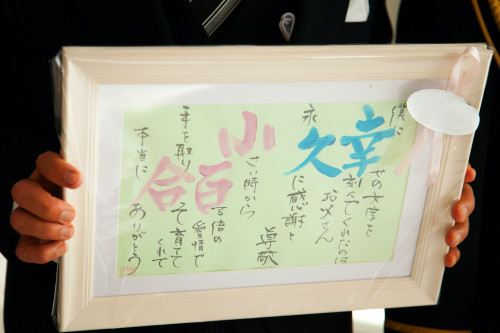 僕に
幸せの大字を
刻んでくれたのは
お父さん
永久に感謝と
尊敬
小さい時から
百倍の
愛情で
手を取り合
って育てて
くれて
本当に ありがとう